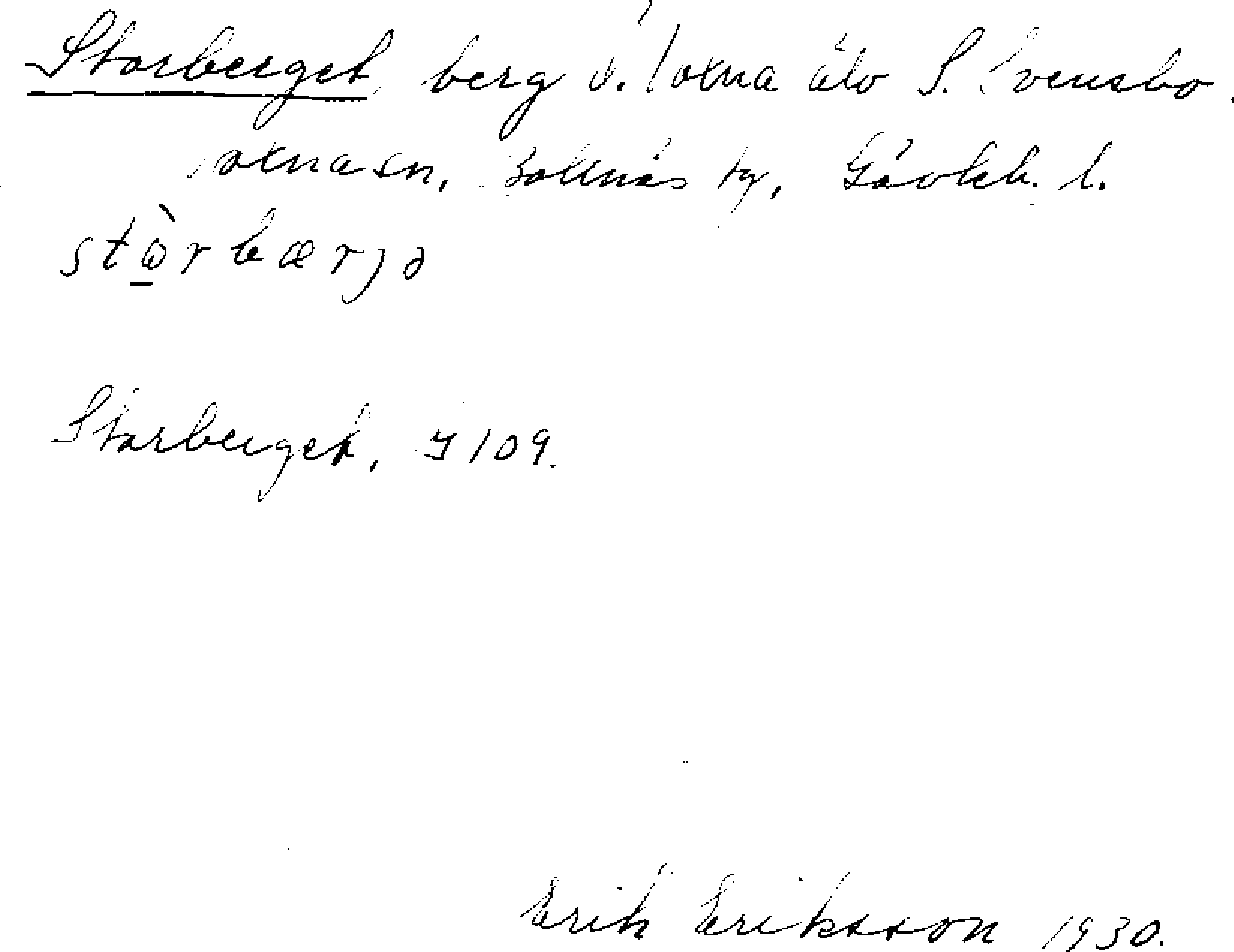 Storberget, berg v. Voxna älv S. Svensbo.
Voxna sn, Bollnäs tg, Gävleb. l.
stò̱rbærjə
Storberget, J 109.
Erik Eriksson 1930.